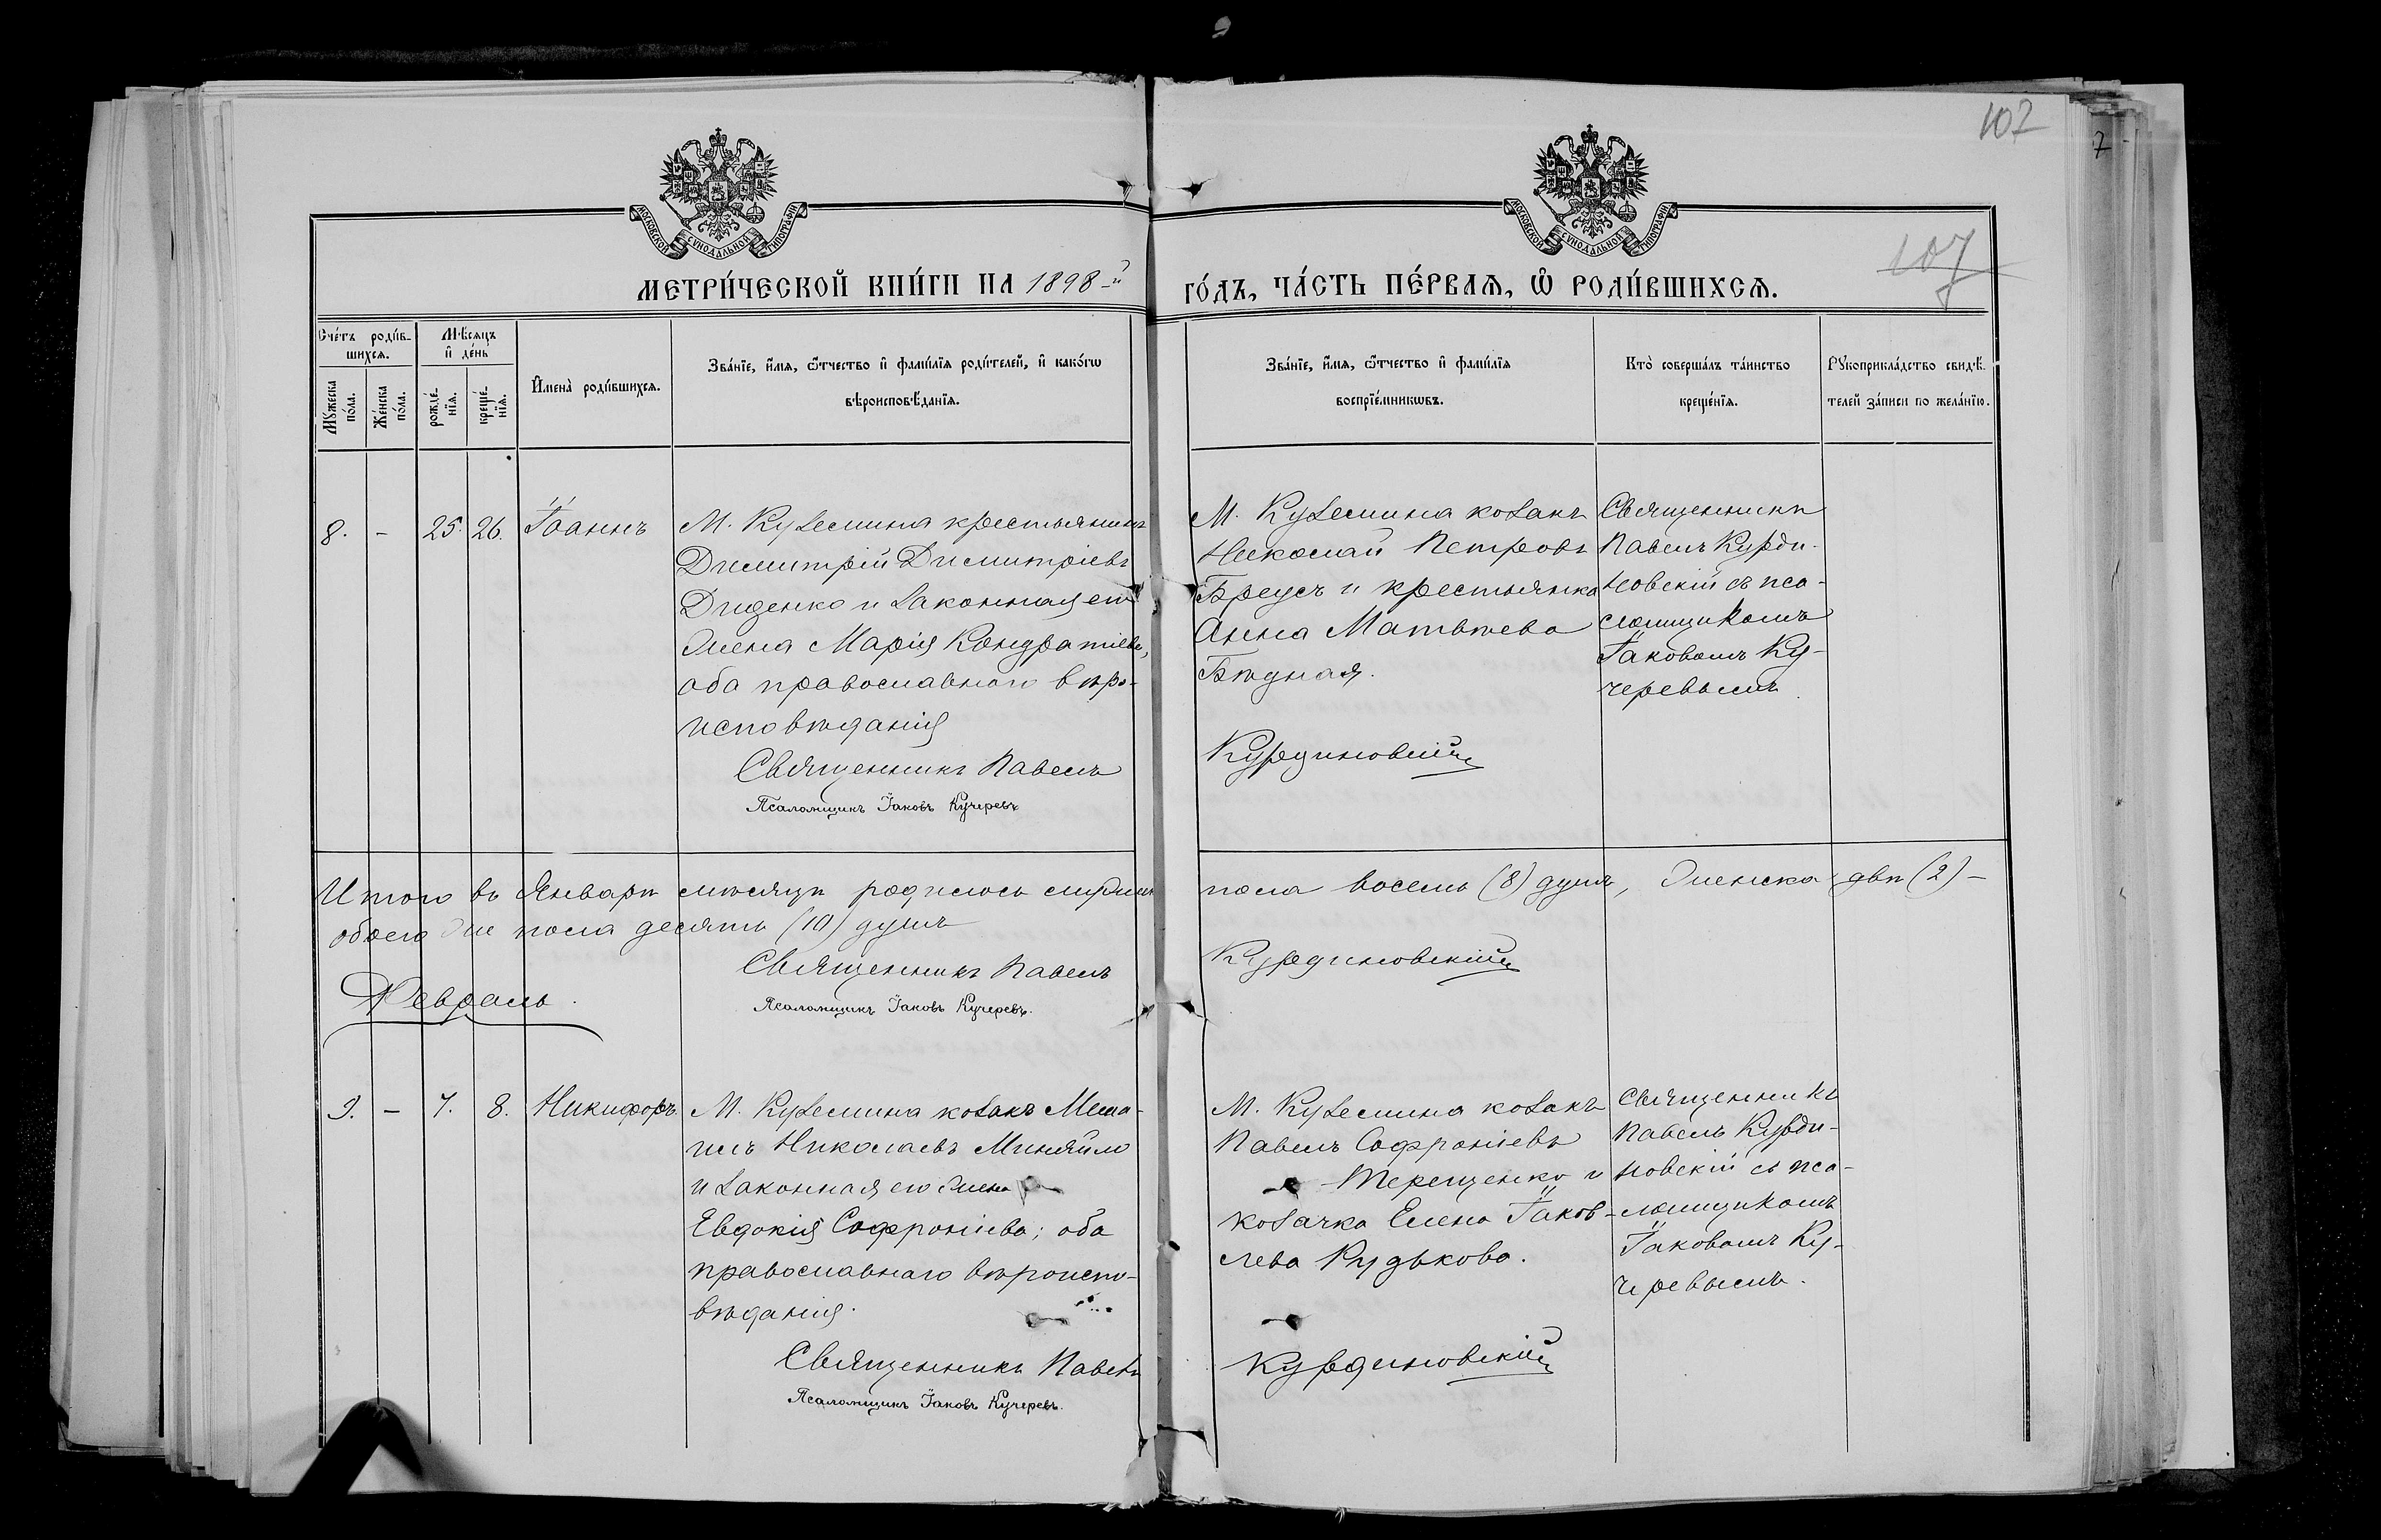 107
7
107
МОСКОВСКОЙ СѴНОДАЛЬНОЙ ТИПОГРАФІИ
МОСКОВСКОЙ СѴНОДАЛЬНОЙ ТИПОГРАФІИ
МЕТРИ́ЧЕСКОЙ КНИ́ГИ НА 1898-й
ГО́ДЪ, ЧА́СТЬ ПЕ́РВАѦ, Ѡ РОДИ́ВШИХСѦ.
Сче́тъ роди́в-
шихсѧ.
Мѣсѧцъ
и҆ де́нь
Мꙋ́жеска
по́ла.
Же́нска
по́ла.
рожде́-
нїѧ.
креще́-
нїѧ.
И҆мена̀ роди́вшихсѧ.
Зва́нїе, и҆́мѧ, ѻ҆́тчество и҆ фами́лїѧ роди́телей, и҆ како́гѡ
вѣроисповѣ́данїѧ.
Зва́нїе, и҆́мѧ, ѻ҆́тчество и҆ фами́лїѧ
воспрїе́мникѡвъ.
Кто̀ соверша́лъ та́инство
креще́нїѧ.
Рꙋкоприкла́дство свидѣ́-
телей за́писи по жела́нїю.
8. - 25. 26. Іоаннъ
М. Куземина крестьянинъ
Димитрій Димитріевъ
Диденко и законная его
жена Марія Кондратіева,
оба православнаго вѣро-
исповѣданія
Священникъ Павелъ
Псаломщикъ Іаковъ Кучеревъ
М. Куземина козакъ
Николай Петровъ
Бреусъ и крестьянка
Анна Матвѣева
Бѣдная.
Курдиновскій
Священникъ
Павелъ Курди-
новскій съ пса-
ломщикомъ
Іаковомъ Ку-
черевымъ
Итого въ Январѣ мѣсяцѣ родилось мужеск пола восемь (8) душъ, женска двѣ (2) -
обоего же пола десять (10) душъ
Священникъ Павелъ Курдиновскій
Псаломщикъ Іаковъ Кучеревъ.
Февраль.
9. - 7. 8. Никифоръ.
М. Куземина козакъ Миха-
илъ Николаевъ Миняйло
и законная его жена
Евдокія Софроніева; оба
православнаго вѣроиспо-
вѣданія.
Священникъ Павелъ
Псаломщикъ Іаковъ Кучеревъ.
М. Куземина козакъ
Павелъ Софроніевъ
Терещенко и
козачка Елена Іаков-
лева Кудькова.
Курдиновскій
Священникъ
Павелъ Курди-
новскій съ пса-
ломщикомъ
Іаковомъ Ку-
черевымъ.